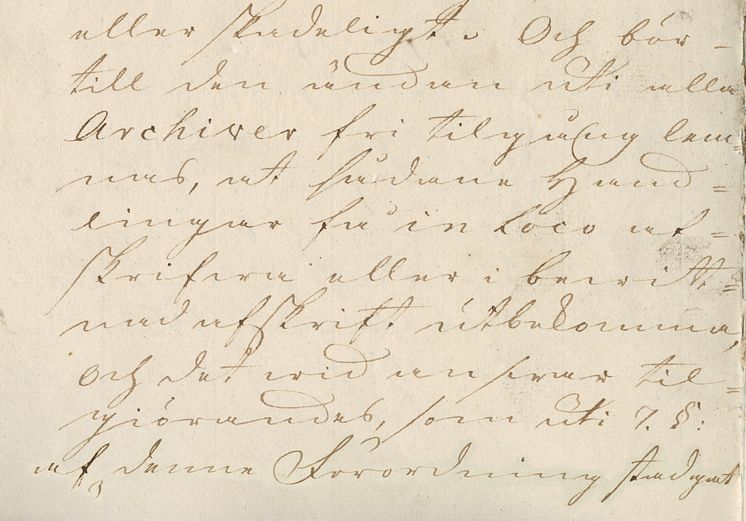 eller skadeligit. Och bör-
till den ändan uti alla
Archiver fri tilgång lem=
nas, at sådane Hand=
lingar få in loco af=
skrifwa eller i bewitt=
nad afskrift utbekomma,
och det wid answar til=
giörandes, som uti 7. §:
af denne Förordning stadgat